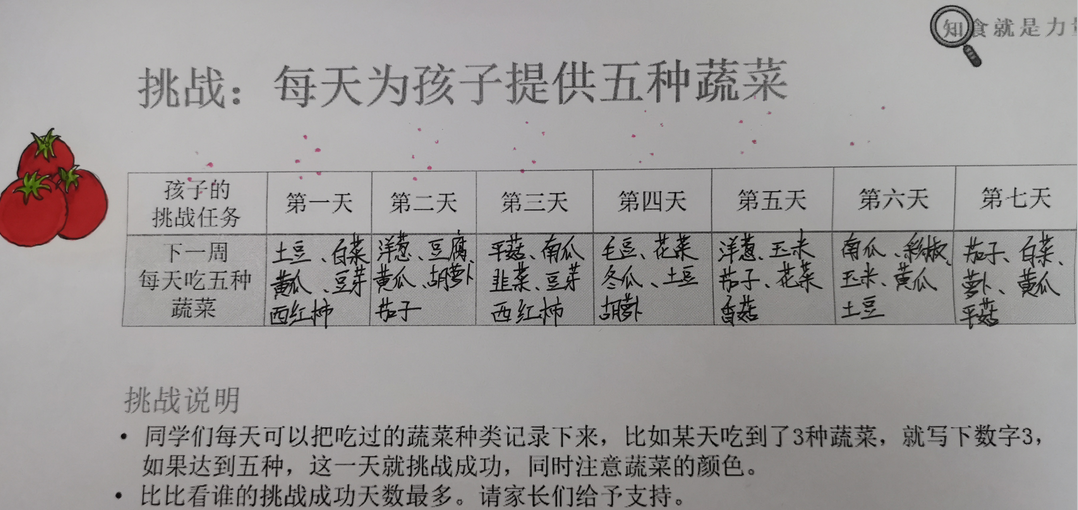 知食就是力量
挑战：每天为孩子提供五种蔬菜
孩子的
挑战任务
第一天 第二天 第三天 第四天 第五天 第六天 第七天
下一周
每天吃五种
蔬菜
土豆、白菜
黄瓜、豆芽
西红柿
洋葱、豆腐、
黄瓜、胡萝卜
茄子
平菇、南瓜
韭菜、豆芽
西红柿
毛豆、花菜
冬瓜、土豆
胡萝卜
洋葱、玉米
茄子、花菜
香菇
南瓜、彩椒、
玉米、黄瓜
土豆
茄子、白菜、
萝卜、黄瓜
平菇
挑战说明
• 同学们每天可以把吃过的蔬菜种类记录下来，比如某天吃到了3种蔬菜，就写下数字3，
如果达到五种，这一天就挑战成功，同时注意蔬菜的颜色。
• 比比看谁的挑战成功天数最多。请家长们给予支持。